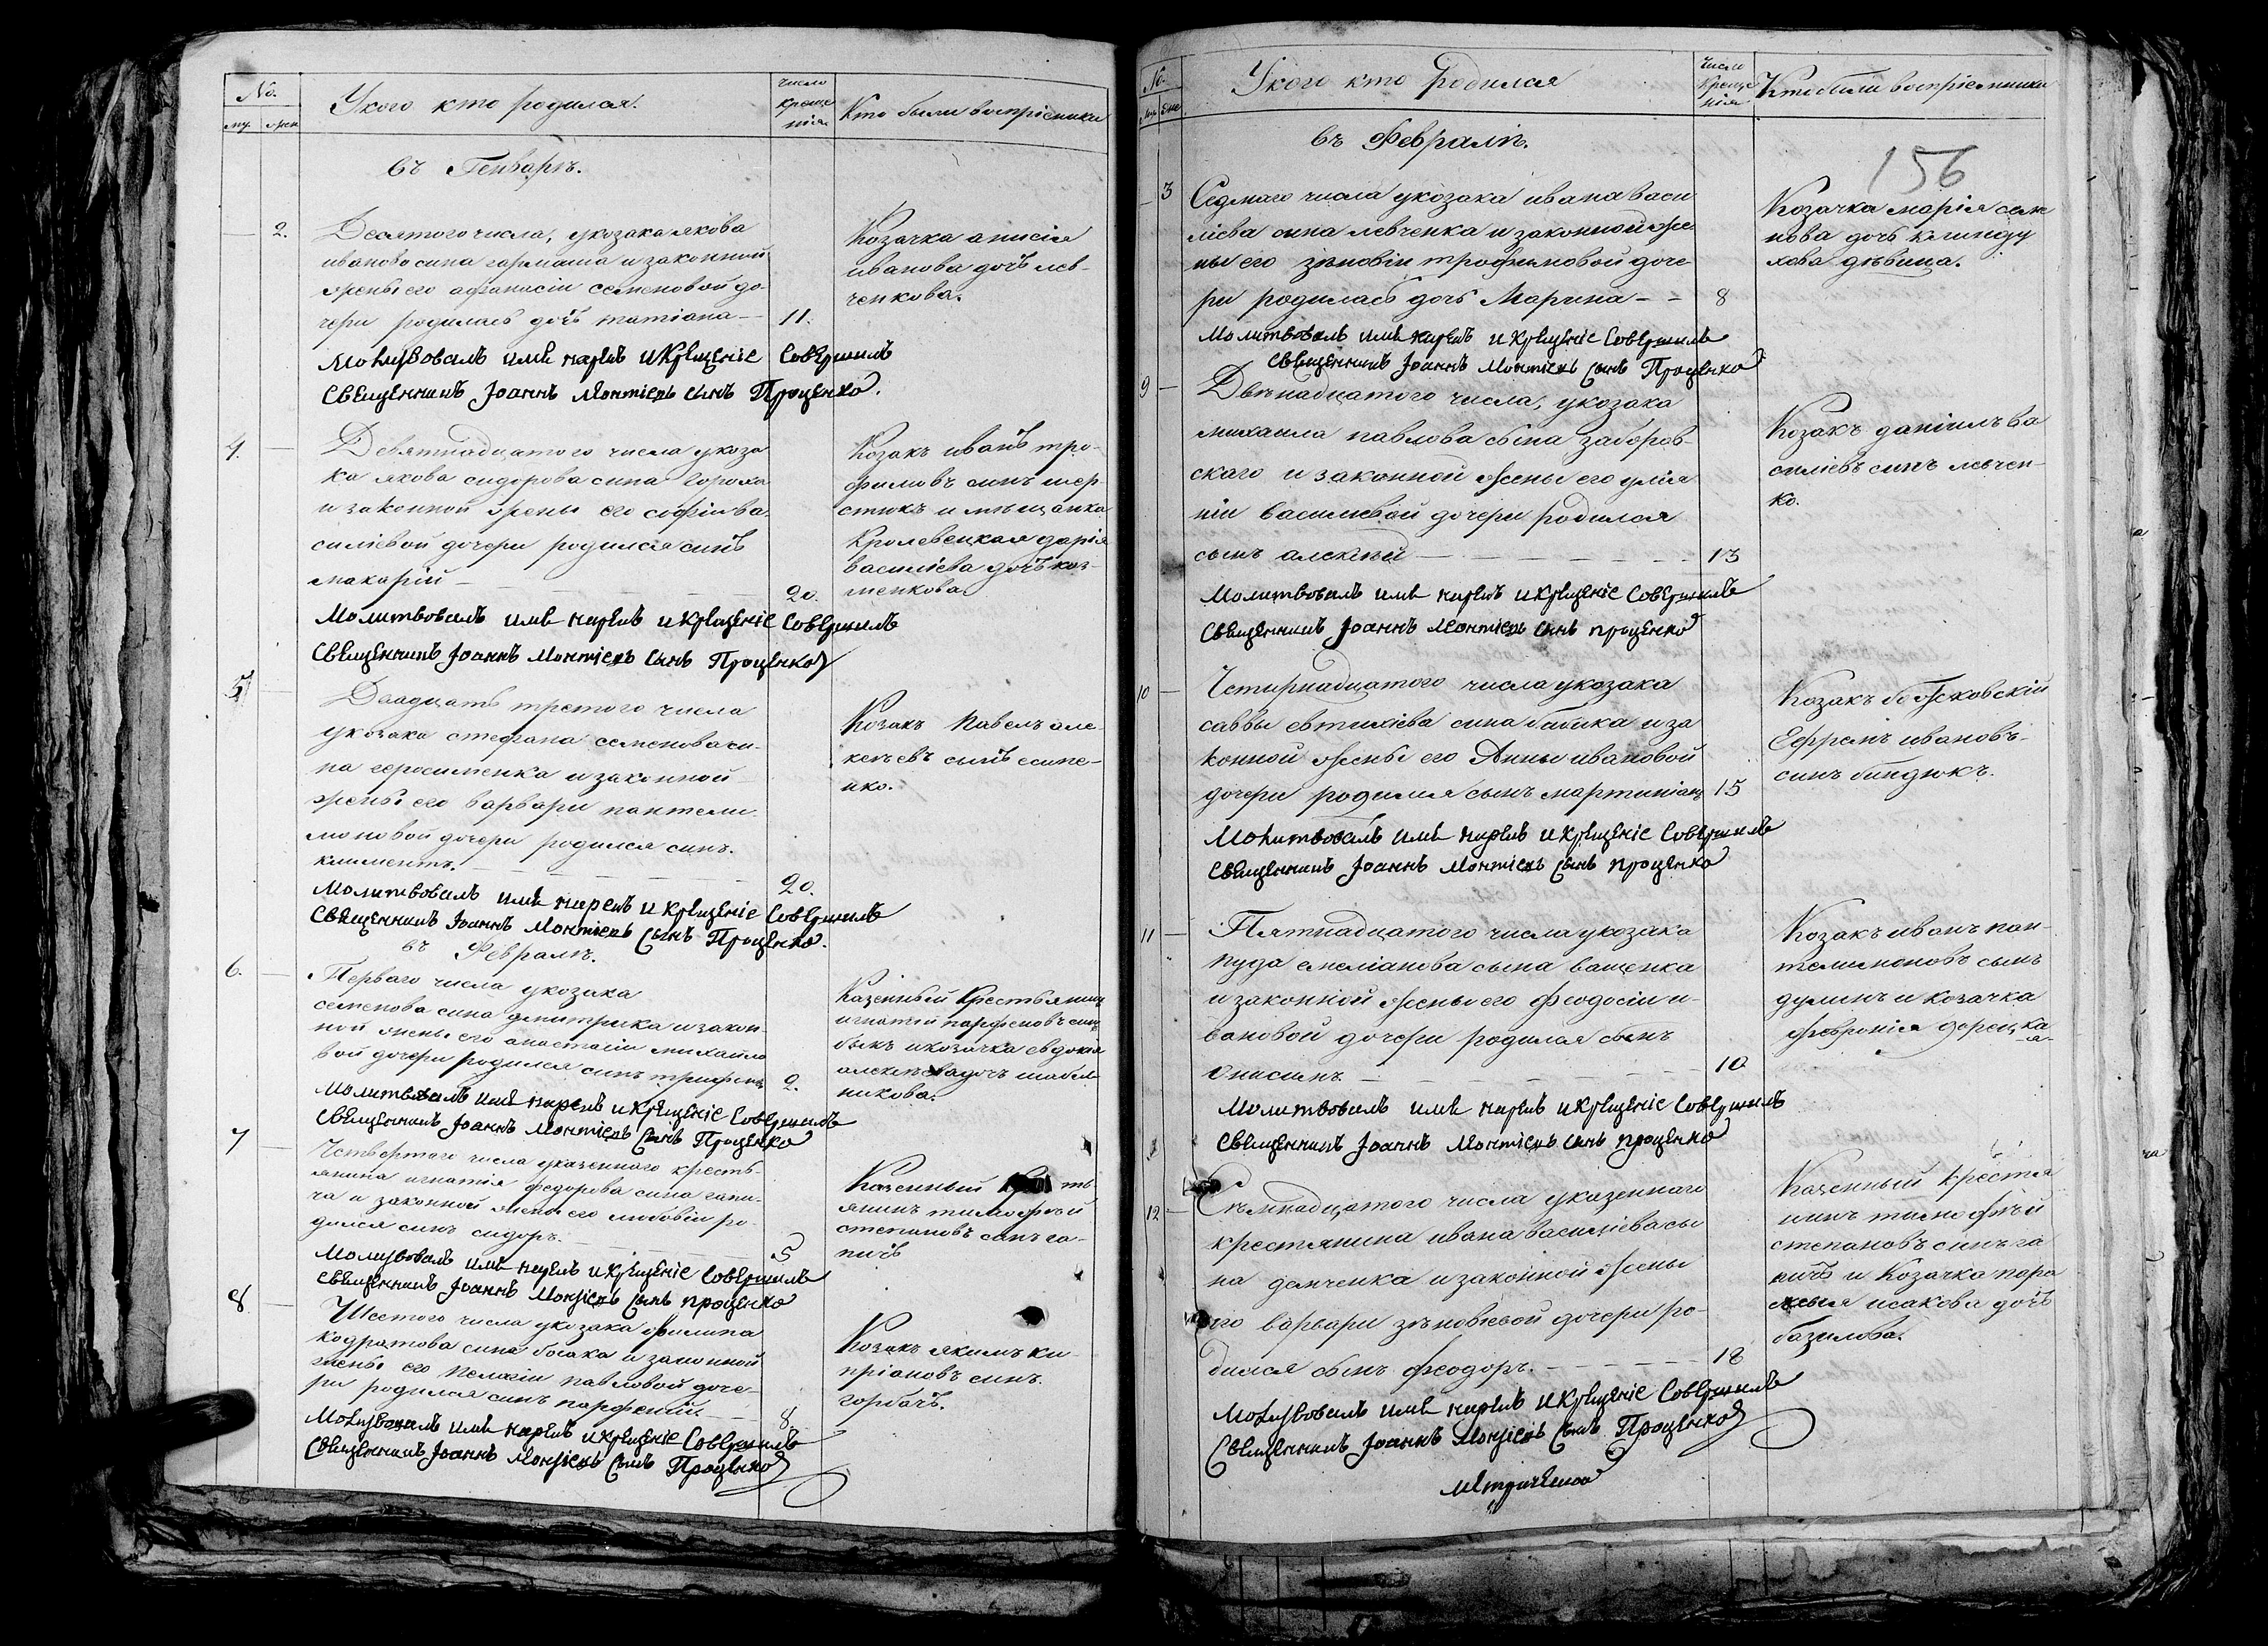 No.
муж. жен.
У кого кто родился.
Число
Креще
нія
Кто были воспріемники
въ Генваръ.
2.
Десятого числа, у козака якова
иванова сина гармаша и законной
жены его афанасіи семеновой до-
чери родилась дочь татіана —
11.
Козачка анисія
иванова дочь лев-
ченкова.
Молитвовалъ имя нарекъ и крещеніе Совершилъ
Священникъ Іоаннъ Монтіевъ сынъ Проценко.
4.
Девятнадцатого числа у коза
ка якова сидорова сина гороха
и законной жены его софіи ва-
силіевой дочери родился синъ
макарій —
20.
Козакъ иванъ тро-
фимовъ синъ шер-
стюкъ и мѣщанка
Кролевецкая дарія
василіева дочь коз-
менкова.
Молитвовалъ имя нарекъ и крещеніе Совершилъ
Священникъ Іоаннъ Монтіевъ сынъ Проценко
5
Двадцать третого числа
у козака стефана семенова си-
на герасименка и законной
жены его варвари пантели-
моновой дочери родился синъ.
климентъ.
20.
Козакъ Павелъ але-
ксѣевъ сынъ есипе-
нко.
Молитвовалъ имя нарекъ и крещеніе Совершилъ
Священникъ Іоаннъ Монтіевъ сынъ Проценко.
въ Февралѣ.
6.
Перваго числа у козака
семенова сина дмитрика и закон-
ной жены его анастасіи михайло
вой дочери родился синъ трифонъ
2.
Казенный Крестьянинъ
игнатій парфеновъ синъ
быкъ и козачка евдокія
алексѣева дочь шабел-
никова.
Молитвовалъ имя нарекъ и крещеніе Совершилъ
Священникъ Іоаннъ Монтіевъ сынъ Проценко
7
Четвертого числа у казенного кресть-
янина игнатія федорова сина гапи-
ча и законной жены его любовіи ро-
дился синъ сидоръ.
5
Казенный
янинъ тимофѣй
степановъ синъ га-
пичъ
Молитвовалъ имя нарекъ и крещеніе Совершилъ
Священникъ Іоаннъ Монтіевъ сынъ проценко
8
Шестого числа у козака филипа
кодратова сина босака и законной
жены его пелагіи павловой доче-
ри родился синъ парфеній.
8.
Козакъ якимъ ки-
пріановъ синъ.
горбачъ.
Молитвовалъ имя нарекъ и крещеніе Совершилъ
Священникъ Іоаннъ Монтіевъ сынъ Проценко
No.
Муж. жен
У кого кто родился
Число
Креще
нія
Кто были воспріемники
въ Февралѣ.
156
3
Седмаго числа у козака ивана васи
ліева сина левченка и законной же
ны его зѣновіи трофимовой доче
ри родилась дочь Марина — —
8
Козачка марія семе
нова дочь клинду
хова дѣвица.
Молитвовалъ имя нарекъ и крещеніе Совершилъ
Священникъ Іоаннъ Монтіевъ сынъ Проценко
9
Двѣнадцатого числа, у козака
михаила павлова сына заборов-
скаго и законной жены его уліа
ніи василиевой дочери родился
сынъ алексѣй —
13
Козакъ даніилъ ва
силіевъ синъ левчен-
ко.
Молитвовалъ имя нарекъ и крещеніе Совершилъ
Священникъ Іоаннъ Монтіевъ сынъ проценко
10
Четирнадцатого числа у козака
саввы евтихіева сина бабика и за
конной жены его Анны ивановой
дочери родился сынъ мартиніанъ
15
Козакъ божковскій
Ефремъ ивановъ-
синъ биндюкъ.
Молитвовалъ имя нарекъ и крещеніе Совершилъ
Священникъ Іоаннъ Монтіевъ сынъ проценко
11
Пятнадцатого числа у козака
пуда емеліанова сына ващенка
и законной жены его феодосіи и-
вановой дочери родился сынъ
онисимъ —
10
Козакъ иванъ пан-
телимоновъ сынъ
думинъ и козачка
февронія
Молитвовалъ имя нарекъ и крещеніе Совершилъ
Священникъ Іоаннъ Монтіевъ сынъ проценко
12
Семнадцатого числа у казеннаго
крестянина ивана василіева сы
на демченка и законной жены
его варвари зѣновіевой дочери ро-
дился сынъ феодоръ.
18
Казенный крестя
нинъ тимофѣй
степановъ синъ га
пичъ и Козачка пара
скевія исакова дочь
базилова.
Молитвовалъ имя нарекъ и крещеніе Совершилъ
Священникъ Іоаннъ Монтіевъ сынъ Проценко